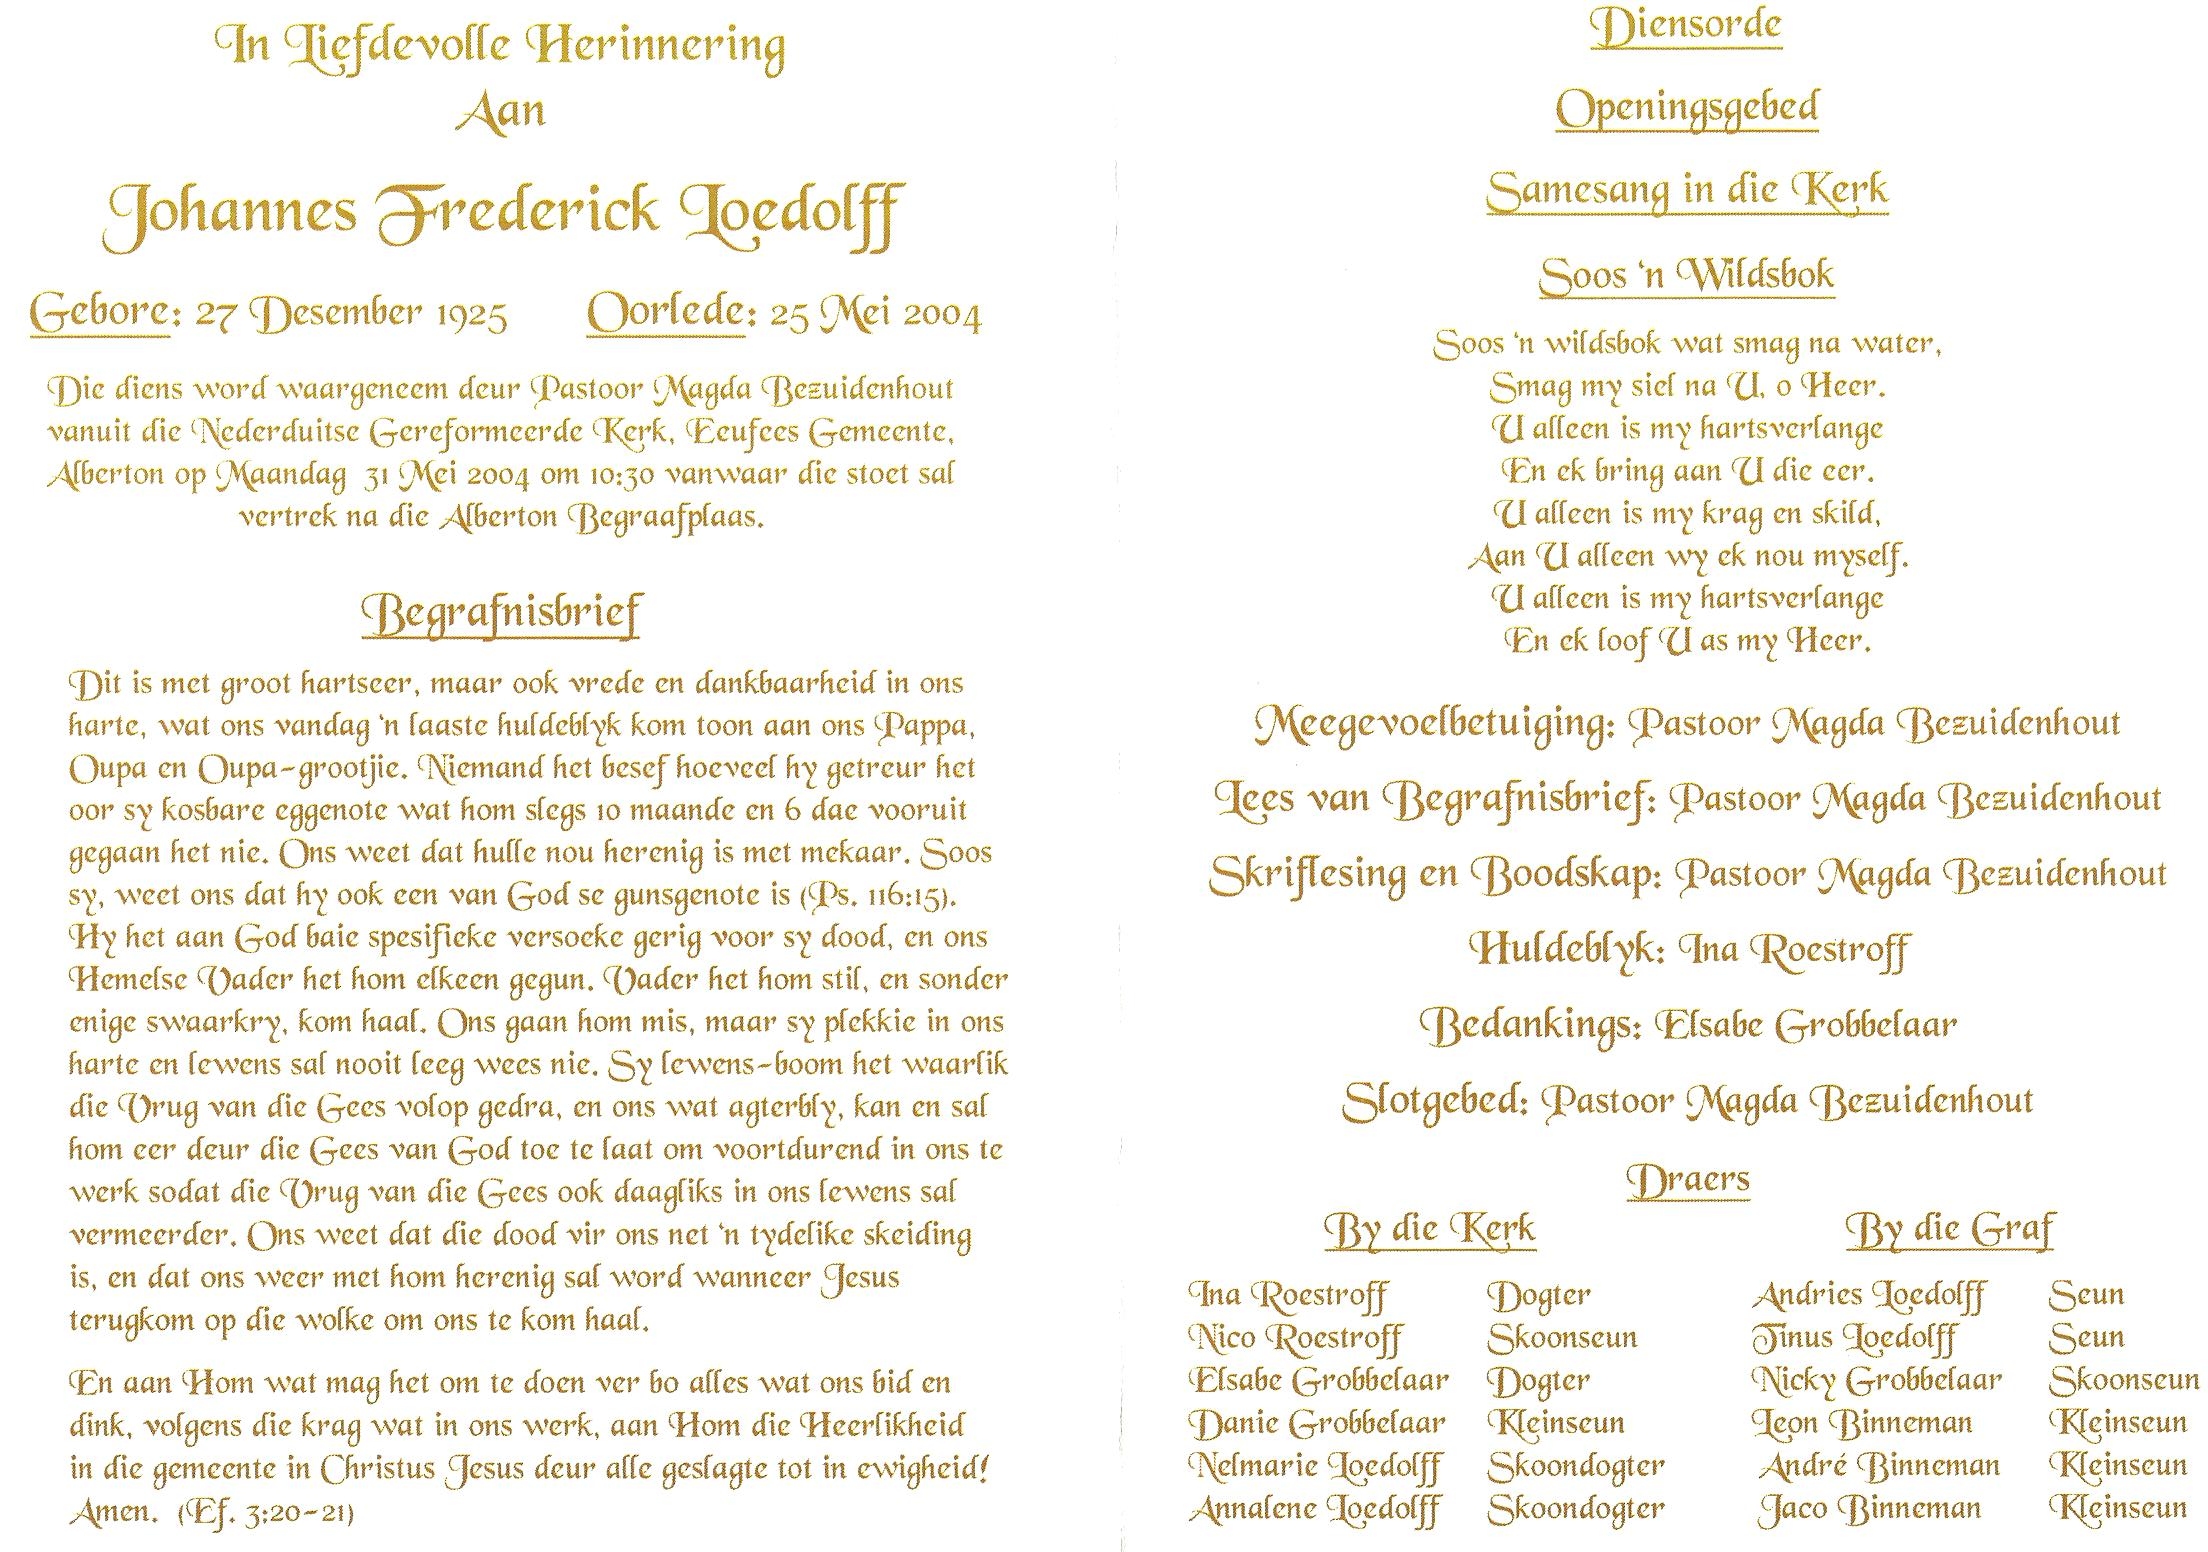 In Liefdevolle Herinnering
Aan
Johannes Frederick Loedolff
Gebore: 27 Desember 1925 Oorlede: 25 Mei 2004
Die diens word waargeneem deur Pastoor Magda Bezuidenhout
vanuit die Nederduitse Gereformeerde Kerk, Eeufees Gemeente,
Alberton op Maandag 31 Mei 2004 om 10:30 vanwaar die stoet sal
vertrek na die Alberton Begraafplaas.
Begrafnisbrief
Dit is met groot hartseer, maar ook vrede en dankbaarheid in ons
harte, wat ons vandag 'n laaste huldeblyk kom toon aan ons Pappa,
Oupa en Oupa-grootjie. Niemand het besef hoeveel hy getreur het
oor sy kosbare eggenote wat hom slegs 10 maande en 6 dae vooruit
gegaan het nie. Ons weet dat hulle nou herenig is met mekaar. Soos
sy, weet ons dat hy ook een van God se gunsgenote is (Ps. 116:15).
Hy het aan God baie spesifieke versoeke gerig voor sy dood, en ons
Hemelse Vader het hom elkeen gegun. Vader het hom stil, en sonder
enige swaarkry, kom haal. Ons gaan hom mis, maar sy plekkie in ons
harte en lewens sal nooit leeg wees nie. Sy lewens-boom het waarlik
die Vrug van die Gees volop gedra, en ons wat agterbly, kan en sal
hom eer deur die Gees van God toe te laat om voortdurend in ons te
werk sodat die Vrug van die Gees ook daagliks in ons lewens sal
vermeerder. Ons weet dat die dood vir ons net 'n tydelike skeiding
is, en dat ons weer met hom herenig sal word wanneer Jesus
terugkom op die wolke om ons te kom haal.
En aan Hom wat mag het om te doen ver bo alles wat ons bid en
dink, volgens die krag wat in ons werk, aan Hom die Heerlikheid
in die gemeente in Christus Jesus deur alle geslagte tot in ewigheid!
Amen. (Ef. 3:20-21)
Diensorde
Openingsgebed
Samesang in die Kerk
Soos 'n Wildsbok
Soos 'n wildsbok wat smag na water,
Smag my siel na U, o Heer.
U alleen is my hartsverlange
En ek bring aan U die eer.
U alleen is my krag en skild,
Aan U alleen wy ek nou myself.
U alleen is my hartsverlange
En ek loof U as my Heer.
Meegevoelbetuiging: Pastoor Magda Bezuidenhout
Lees van Begrafnisbrief: Pastoor Magda Bezuidenhout
Skriflesing en Boodskap: Pastoor Magda Bezuidenhout
Huldeblyk: Ina Roestroff
Bedankings: Elsabe Grobbelaar
Slotgebed: Pastoor Magda Bezuidenhout
Draers
By die Kerk By die Graf
Ina Roestroff Dogter Andries Loedolff Seun
Nico Roestroff Skoonseun Tinus Loedolff Seun
Elsabe Grobbelaar Dogter Nicky Grobbelaar Skoonseun
Danie Grobbelaar Kleinseun Leon Binneman Kleinseun
Nelmarie Loedolff Skoondogter André Binneman Kleinseun
Annalene Loedolff Skoondogter Jaco Binneman Kleinseun